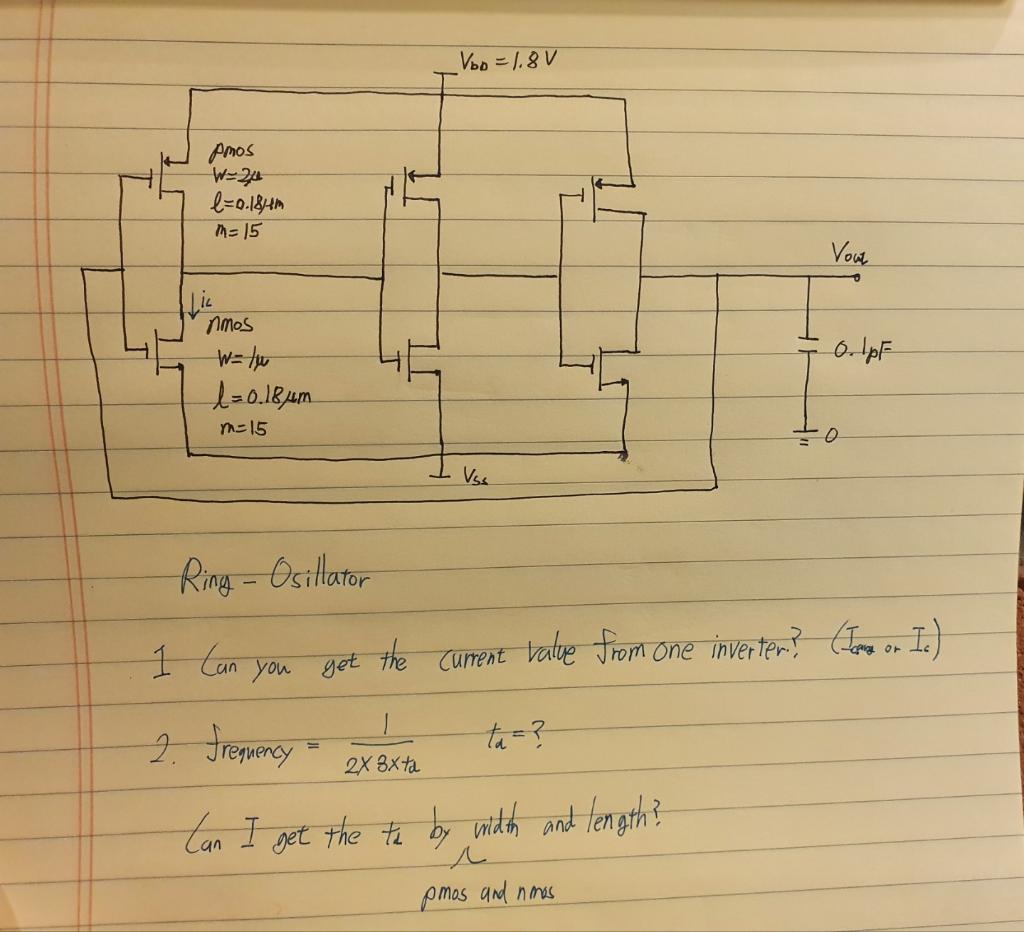 VDD = 1.8 V
pmos
W=2μ
l=0.18μm
m=15
Vout
ic
nmos
W=1μ
l=0.18μm
m=15
0.1pF
0
Vss
Ring - Osillator
1 Can you get the current value from one inverter? ( or Ic)
2. frequency = 1 / 2×3×td td = ?
Can I get the td by width and length?
pmos and nmos